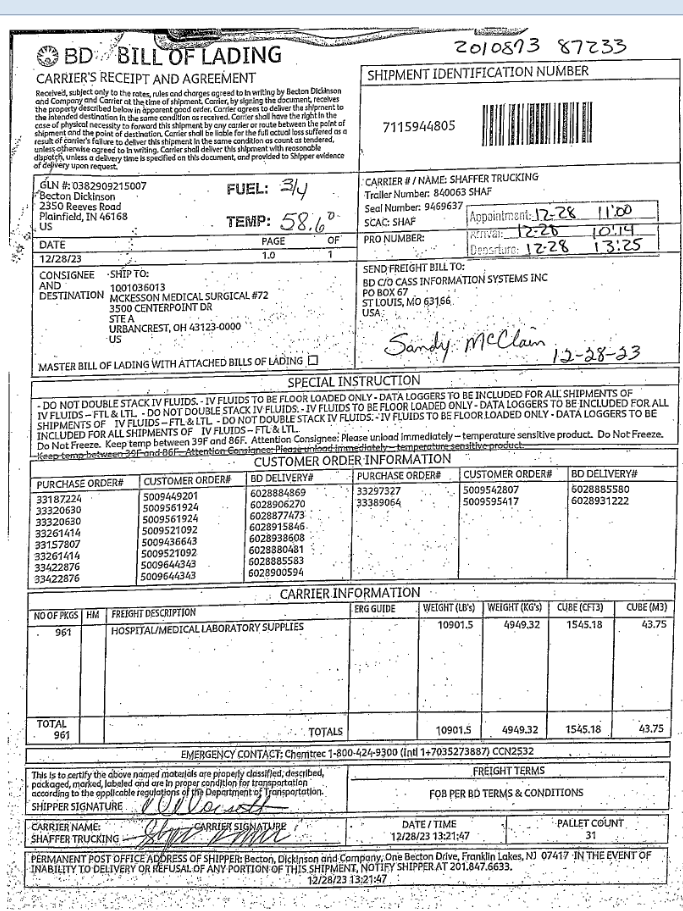 2010873 87233
BD BILL OF LADING
CARRIER'S RECEIPT AND AGREEMENT
Received, subject only to the rates, rules and charges agreed to in writing by Becton Dickinson
and Company and Carrier at the time of shipment. Carrier, by signing the document, receives
the property described below in apparent good order. Carrier agrees to deliver the shipment to
the intended destination in the same condition as received. Carrier shall have the right in the
case of physical necessity to forward this shipment by any carrier or route between the point of
shipment and the point of destination. Carrier shall be liable for the full actual loss suffered as a
result of carrier's failure to deliver this shipment in the same condition as count as tendered,
unless otherwise agreed to in writing. Carrier shall deliver this shipment with reasonable
dispatch, unless a delivery time is specified on this document, and provided to Shipper evidence
of delivery upon request.
SHIPMENT IDENTIFICATION NUMBER
7115944805
GLN #: 0382909215007
Becton Dickinson
2350 Reeves Road
Plainfield, IN 46168
US
FUEL: 3/4
TEMP: 58.6°
CARRIER # / NAME: SHAFFER TRUCKING
Trailer Number: 840063 SHAF
Seal Number: 9469637
SCAC: SHAF
PRO NUMBER:
Appointment: 12-28 11:00
Arrival: 12-28 10:14
Departure: 12-28 13:25
DATE PAGE OF
12/28/23 1.0 1
CONSIGNEE AND DESTINATION
SHIP TO:
1001036013
MCKESSON MEDICAL SURGICAL #72
3500 CENTERPOINT DR
STE A
URBANCREST, OH 43123-0000
US
MASTER BILL OF LADING WITH ATTACHED BILLS OF LADING
SEND FREIGHT BILL TO:
BD C/O CASS INFORMATION SYSTEMS INC
PO BOX 67
ST LOUIS, MO 63166
USA
Sandy McClain 12-28-23
SPECIAL INSTRUCTION
- DO NOT DOUBLE STACK IV FLUIDS. - IV FLUIDS TO BE FLOOR LOADED ONLY - DATA LOGGERS TO BE INCLUDED FOR ALL SHIPMENTS OF
IV FLUIDS – FTL & LTL. - DO NOT DOUBLE STACK IV FLUIDS. - IV FLUIDS TO BE FLOOR LOADED ONLY - DATA LOGGERS TO BE INCLUDED FOR ALL
SHIPMENTS OF IV FLUIDS – FTL & LTL. - DO NOT DOUBLE STACK IV FLUIDS. - IV FLUIDS TO BE FLOOR LOADED ONLY - DATA LOGGERS TO BE
INCLUDED FOR ALL SHIPMENTS OF IV FLUIDS – FTL & LTL.
Do Not Freeze. Keep temp between 39F and 86F. Attention Consignee: Please unload immediately – temperature sensitive product. Do Not Freeze.
Keep temp between 39F and 86F. Attention Consignee: Please unload immediately – temperature sensitive product.
CUSTOMER ORDER INFORMATION
PURCHASE ORDER# CUSTOMER ORDER# BD DELIVERY# PURCHASE ORDER# CUSTOMER ORDER# BD DELIVERY#
33187224 5009449201 6028884869 33297327 5009542807 6028885580
33320630 5009561924 6028906270 33389064 5009595417 6028931222
33320630 5009561924 6028877473
33261414 5009521092 6028915846
33157807 5009436643 6028938608
33261414 5009521092 6028880481
33422876 5009644343 6028885583
33422876 5009644343 6028900594
CARRIER INFORMATION
NO OF PKGS HM FREIGHT DESCRIPTION ERG GUIDE WEIGHT (LB's) WEIGHT (KG's) CUBE (CFT3) CUBE (M3)
961 HOSPITAL/MEDICAL LABORATORY SUPPLIES 10901.5 4949.32 1545.18 43.75
TOTAL
961 TOTALS 10901.5 4949.32 1545.18 43.75
EMERGENCY CONTACT: Chemtrec 1-800-424-9300 (Intl 1+7035273887) CCN2532
This is to certify the above named materials are properly classified, described,
packaged, marked, labeled and are in proper condition for transportation
according to the applicable regulations of the Department of Transportation.
SHIPPER SIGNATURE
FREIGHT TERMS
FOB PER BD TERMS & CONDITIONS
CARRIER NAME: CARRIER SIGNATURE
SHAFFER TRUCKING
DATE / TIME
12/28/23 13:21:47
PALLET COUNT
31
PERMANENT POST OFFICE ADDRESS OF SHIPPER: Becton, Dickinson and Company, One Becton Drive, Franklin Lakes, NJ 07417 IN THE EVENT OF
INABILITY TO DELIVERY OR REFUSAL OF ANY PORTION OF THIS SHIPMENT, NOTIFY SHIPPER AT 201.847.6633.
12/28/23 13:21:47